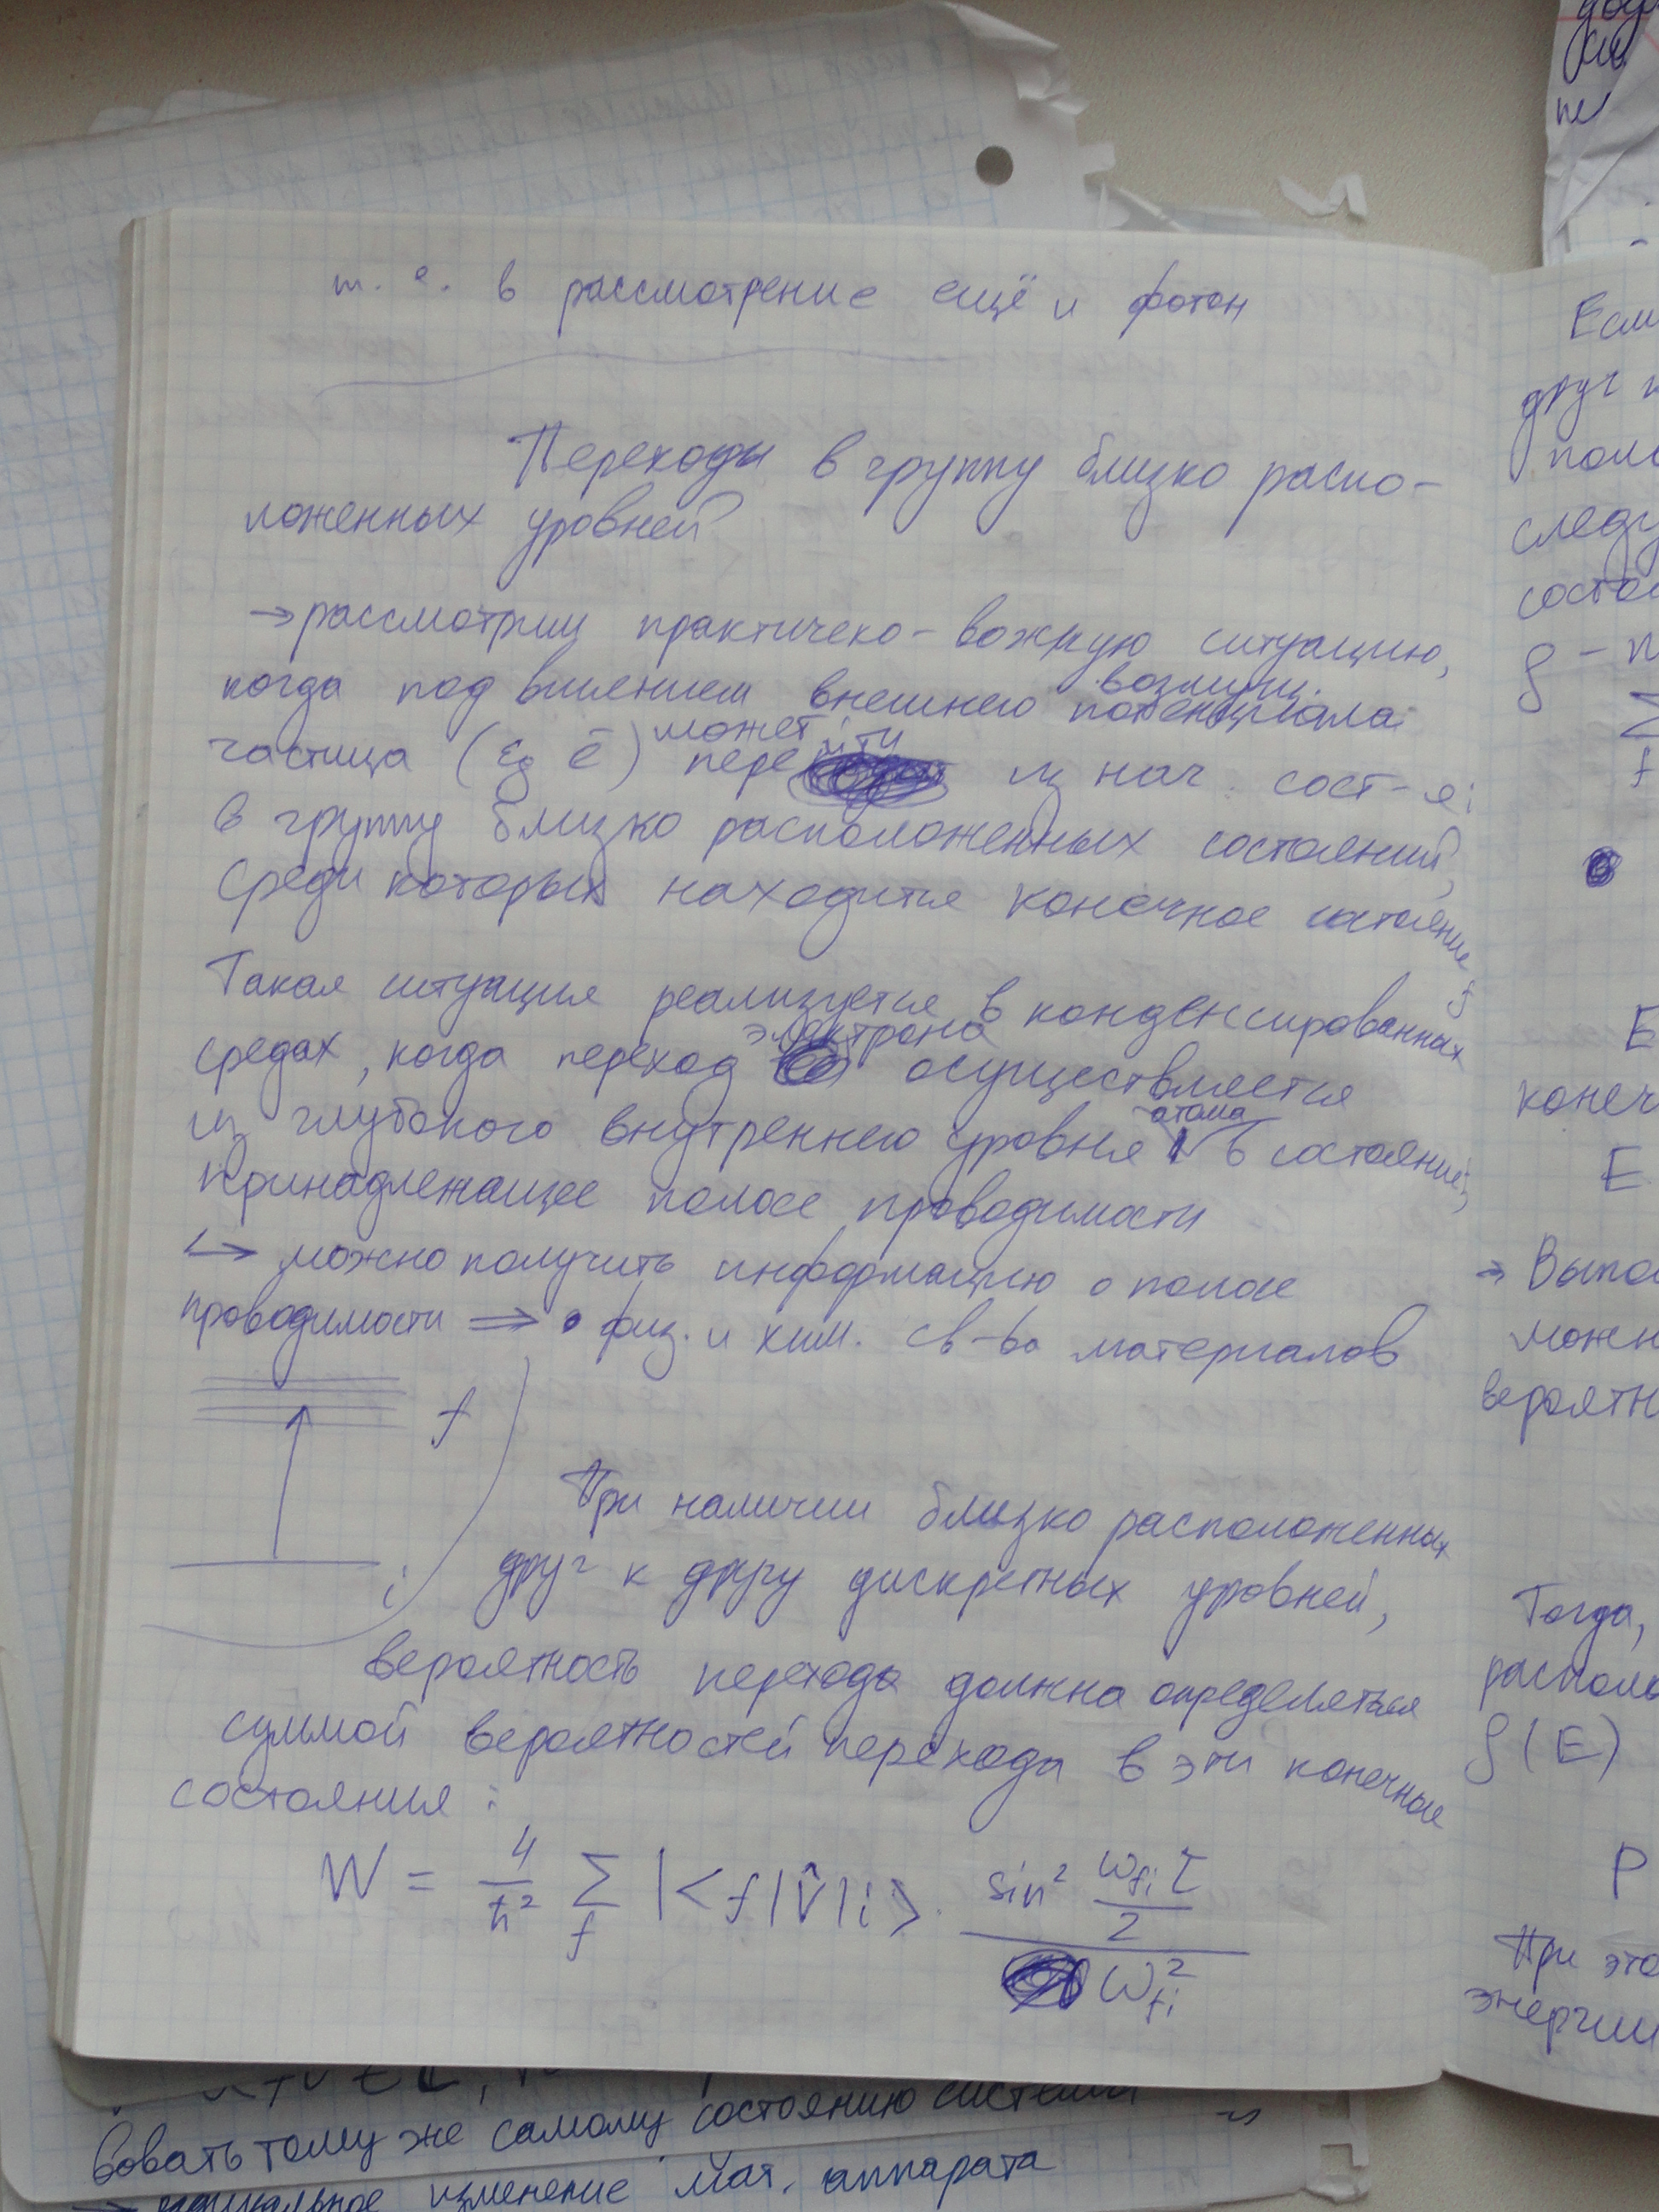 т. е. в рассмотрение ещё и фотон
Переходы в группу близко распо-
ложенных уровней
→ рассмотрим практичеко-важную ситуацию,
когда под влиянием внешнего возмущ. потенциала
частица (eg ē) может перейти из нач. сост-я i
в группу близко расположенных состояний,
среди которых находится конечное состояние f
Такая ситуация реализуется в конденсированных
средах, когда переход электрона осуществляется
из глубокого внутреннего уровня атома в состояние,
принадлежащее полосе проводимости
↳ можно получить информацию о полосе
проводимости ⇒ физ. и хим. св-ва материалов
f
i
При наличии близко расположенных
друг к другу дискретных уровней,
вероятность перехода должна определяться
суммой вероятностей перехода в эти конечные
состояния:
W = 4/ħ² Σ_f |<f|V̂|i> · sin² (ω_fi τ / 2) / ω_fi²
Если
друг
следу
ρ -
Σ
f
E
конеч
E
→
можн
вероятн
Тогда,
располо
ρ(E)
P
При это
энергии
вовать тому же самому состоянию системы
изменение мат. аппарата